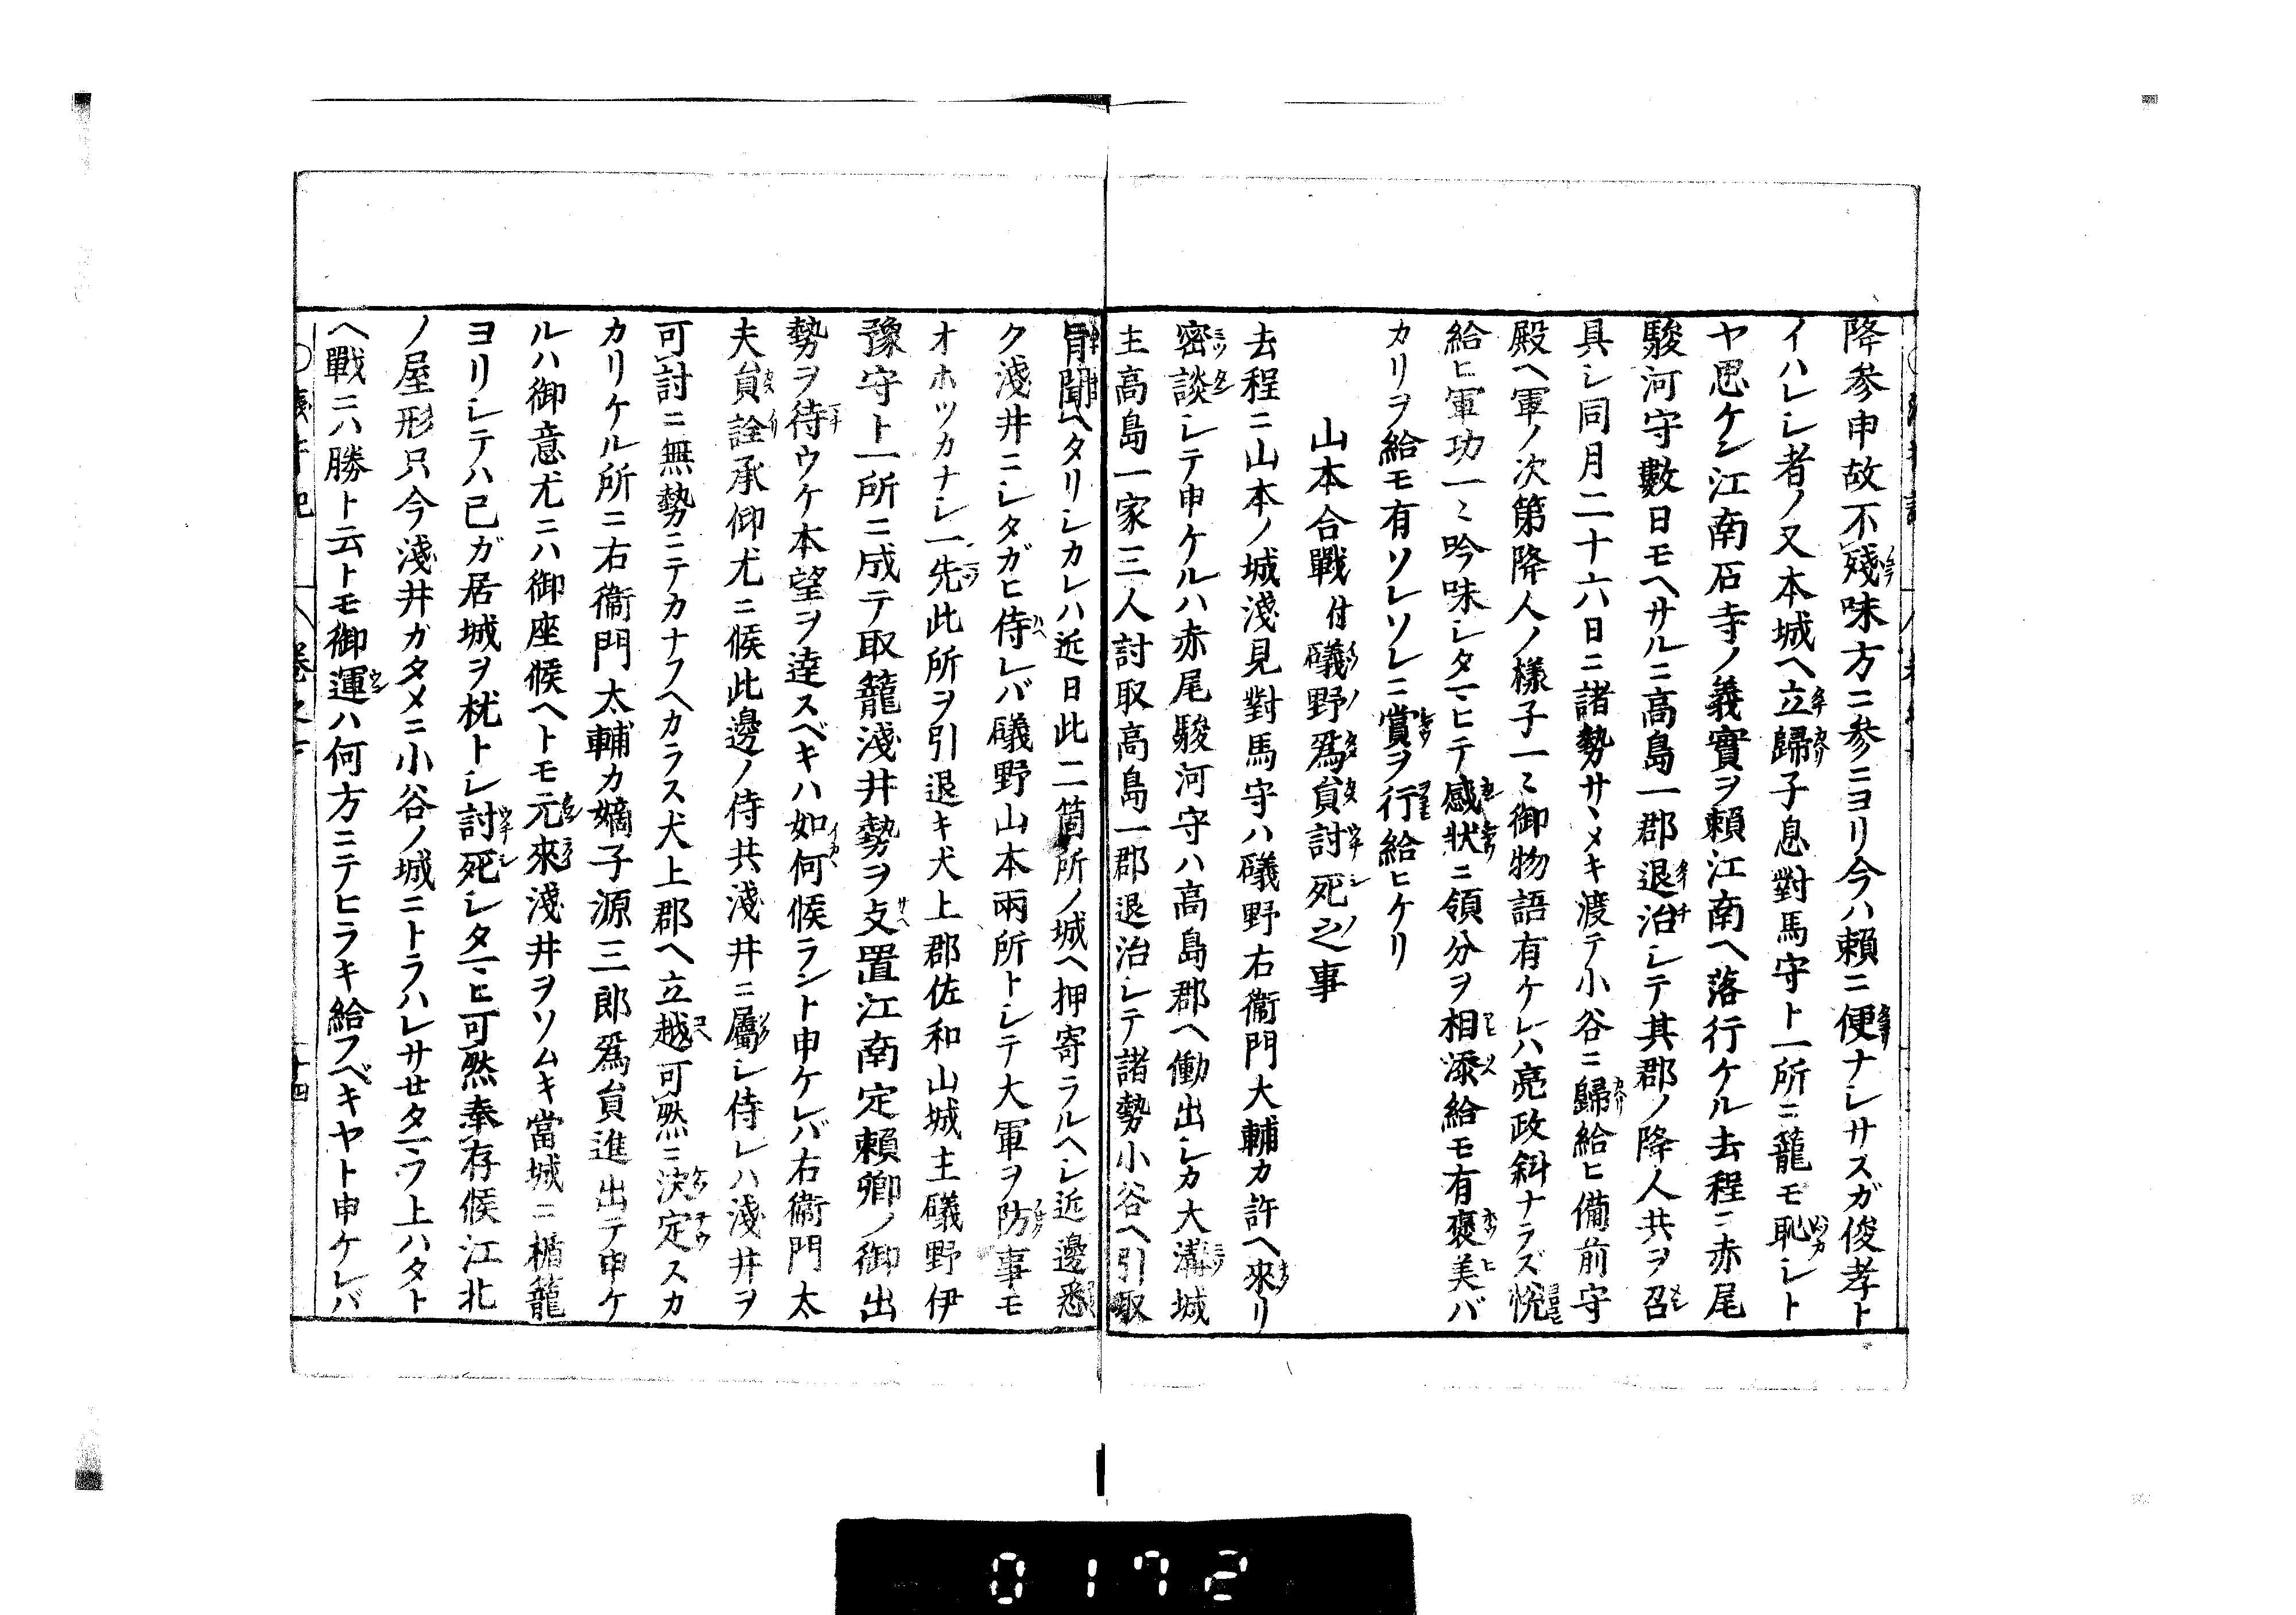 降参申故不殘味方ニ参ニヨリ今ハ頼ニ便ナシサスガ俊孝ト
イハレシ者ノ又本城ヘ立歸子息對馬守ト一所ニ籠モ恥シト
ヤ思ケン江南石寺ノ義實ヲ頼江南ヘ落行ケル去程ニ赤尾
駿河守數日モヘサルニ高島一郡退治シテ其郡ノ降人共ヲ召
具シ同月二十六日ニ諸勢サヽメキ渡テ小谷ニ歸給ヒ備前守
殿ヘ軍ノ次第降人ノ樣子一ミ御物語有ケレハ亮政斜ナラズ悦
給ヒ軍功一ミ吟味シタマヒテ感狀ニ領分ヲ相添給モ有褒美バ
カリヲ給モ有ソレソレニ賞ヲ行給ヒケリ
山本合戰付礒野爲負討死之事
去程ニ山本ノ城淺見對馬守ハ礒野右衞門大輔カ許ヘ來リ
密談シテ申ケルハ赤尾駿河守ハ高島郡ヘ働出シカ大溝城
主高島一家三人討取高島一郡退治シテ諸勢小谷ヘ引取
旨聞ヘタリシカレハ近日此二箇所ノ城ヘ押寄ラルヘシ近邊悉
ク淺井ニシタガヒ侍レバ礒野山本兩所トシテ大軍ヲ防事モ
オホツカナシ一先此所ヲ引退キ犬上郡佐和山城主礒野伊
豫守ト一所ニ成テ取籠淺井勢ヲ支置江南定頼卿ノ御出
勢ヲ待ウケ本望ヲ達スベキハ如何候ラント申ケレバ右衞門太
夫員詮承仰尤ニ候此邊ノ侍共淺井ニ屬シ侍レハ淺井ヲ
可討ニ無勢ニテカナフヘカラス犬上郡ヘ立越可然ニ決定スカ
カリケル所ニ右衞門太輔カ嫡子源三郎爲員進出テ申ケ
ルハ御意尤ニハ御座候ヘトモ元來淺井ヲソムキ當城ニ楯籠
ヨリシテハ已ガ居城ヲ枕トシ討死シタマヒ可然奉存候江北
ノ屋形只今淺井ガタメニ小谷ノ城ニトラハレサセタマフ上ハタト
ヘ戰ニハ勝ト云トモ御運ハ何方ニテヒラキ給フベキヤト申ケレバ
十四
0172